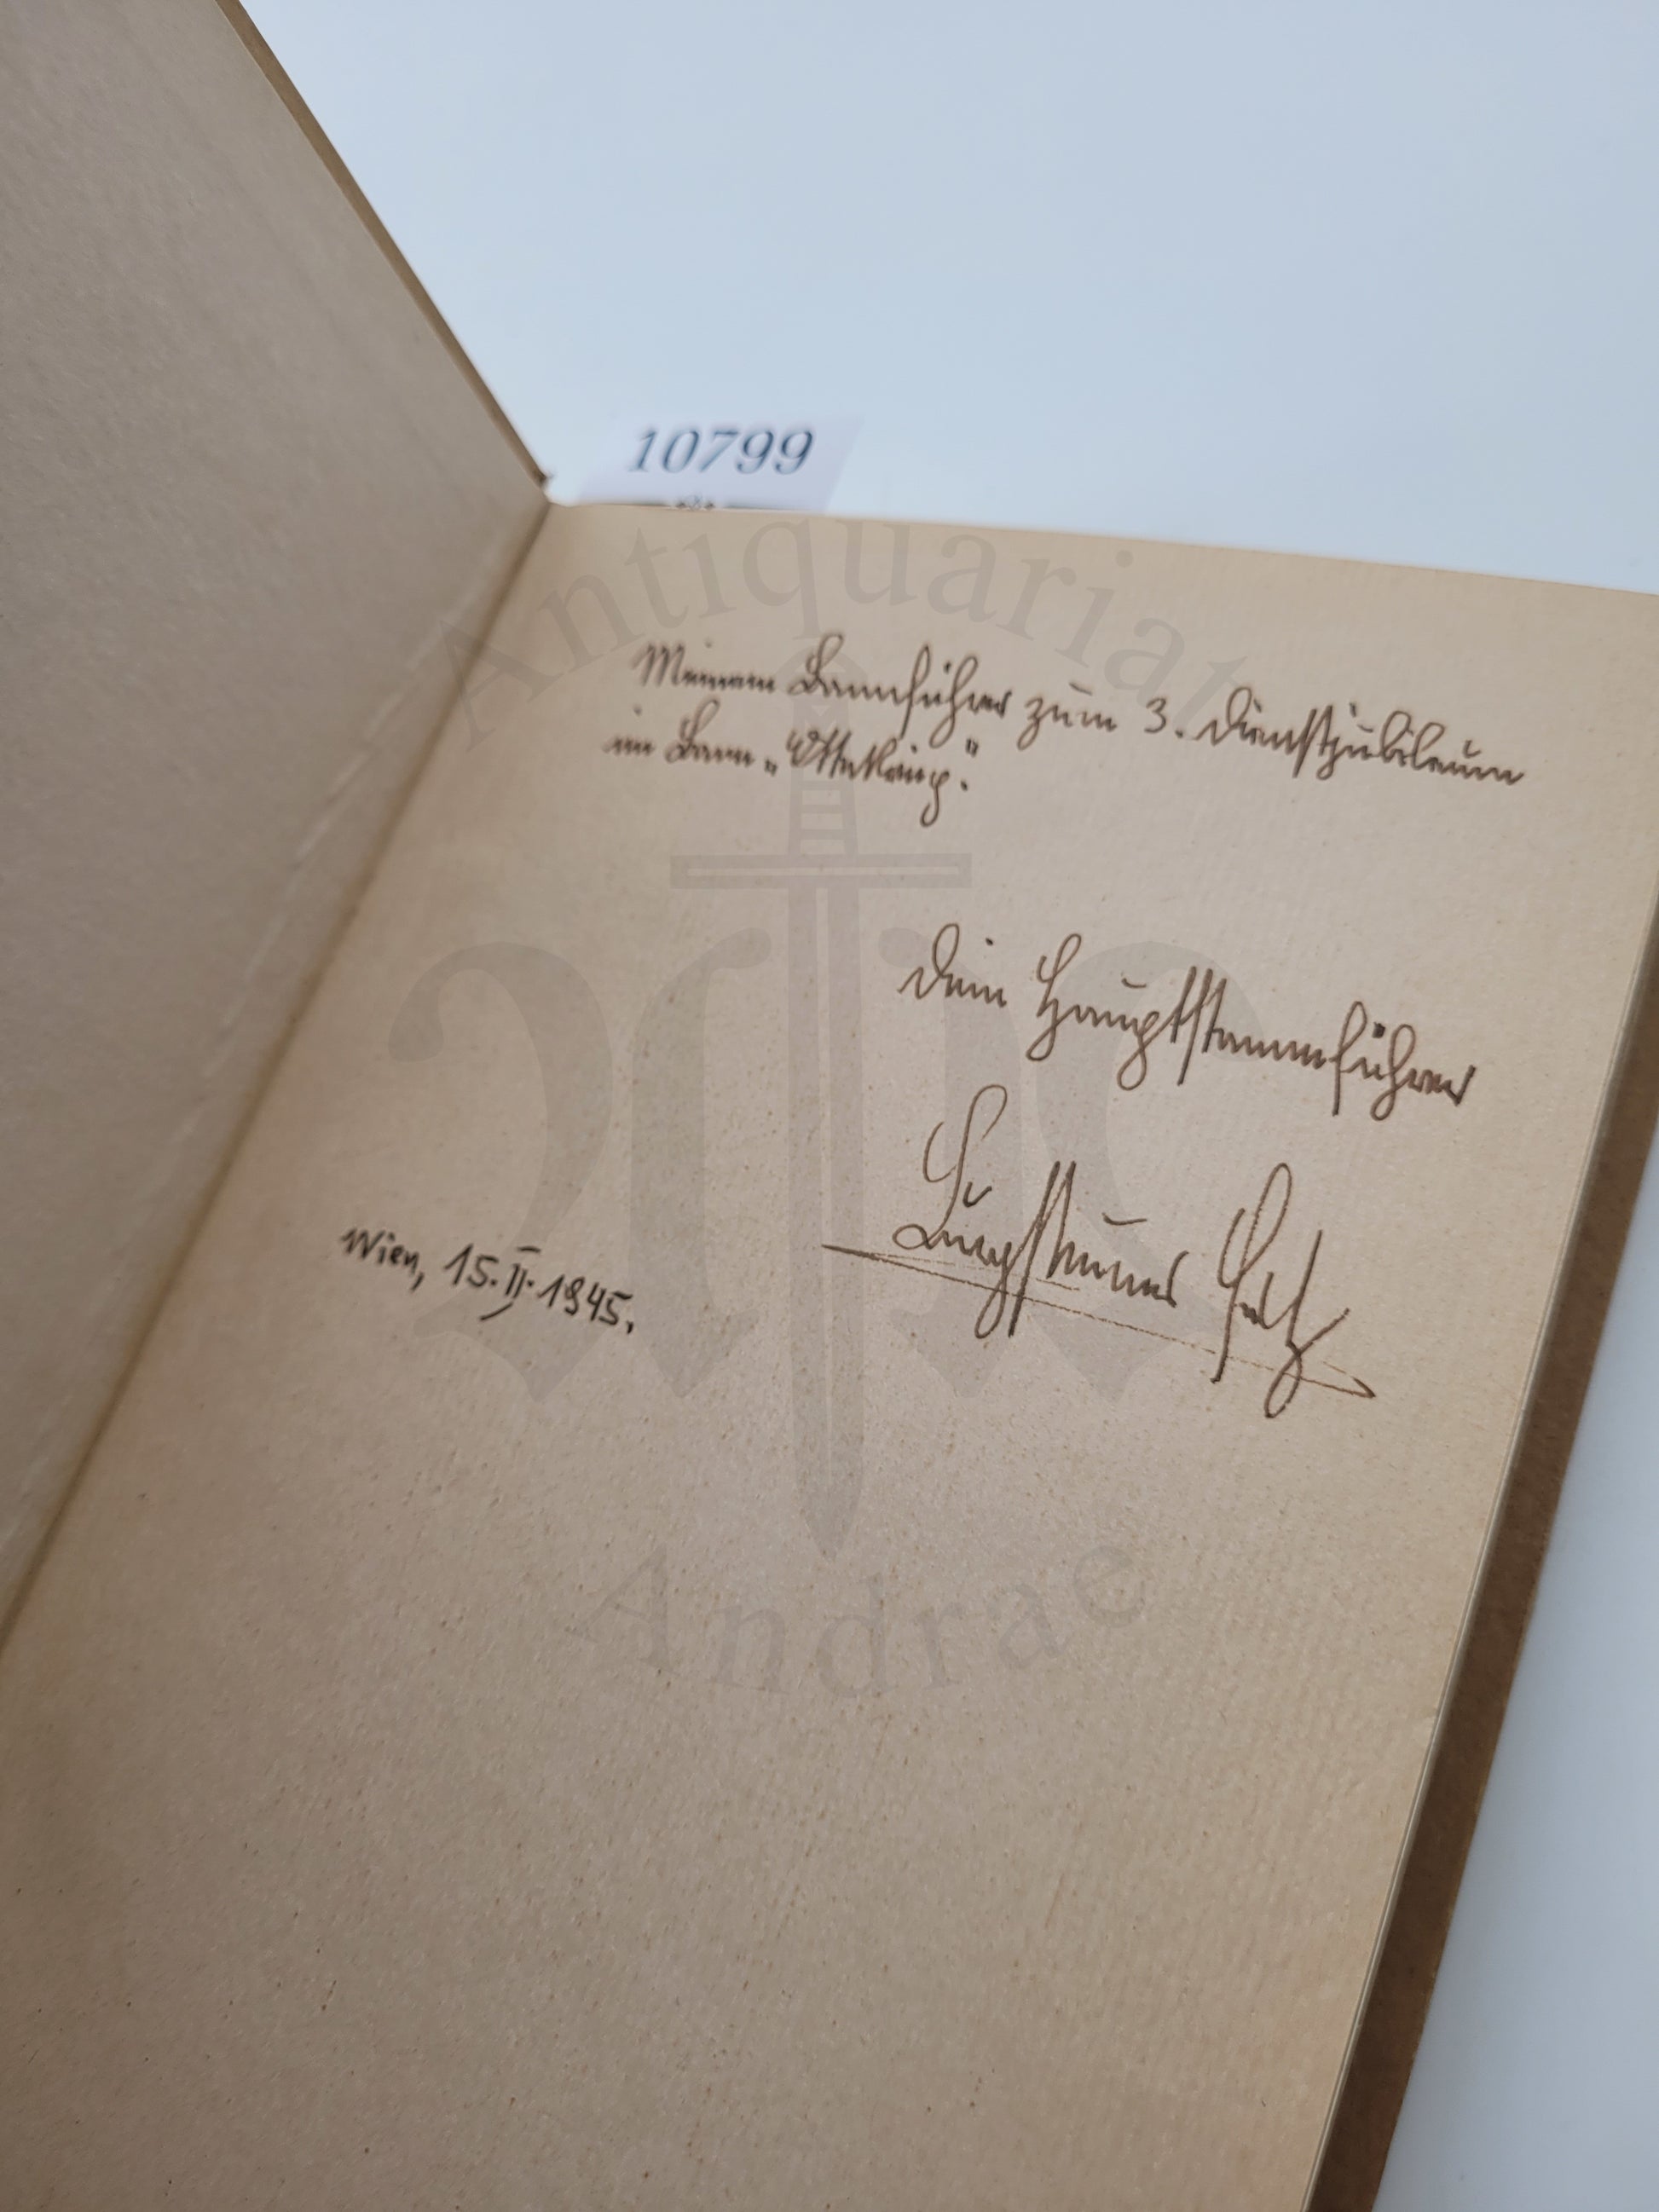 10799
Antiquariat
Meinem Bannführer zum 3. Dienstjubileum
im Bann „Ottakring".
Dein Hauptstammführer
Wien, 15.II.1945.
Andrae